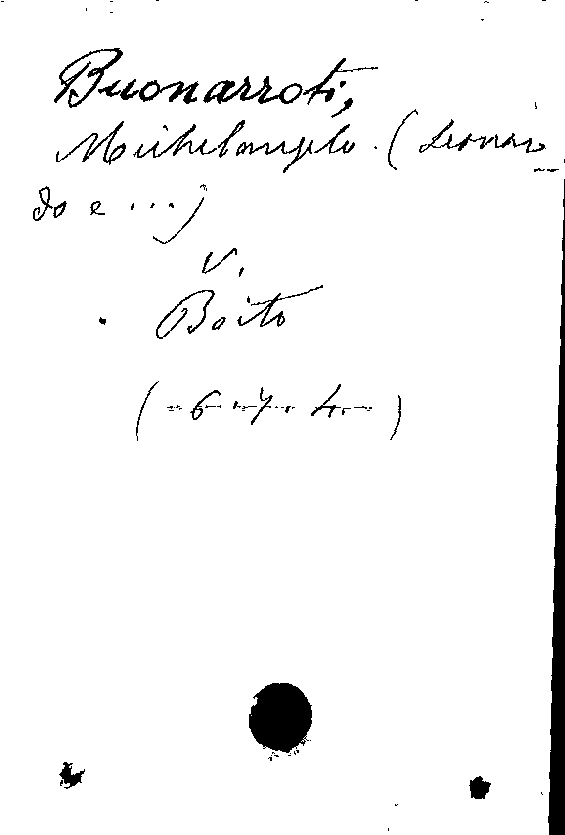 Buonarroti,
Michelangelo. (Leonar
do e ...)
V.
Boito
(-6-7-4-)